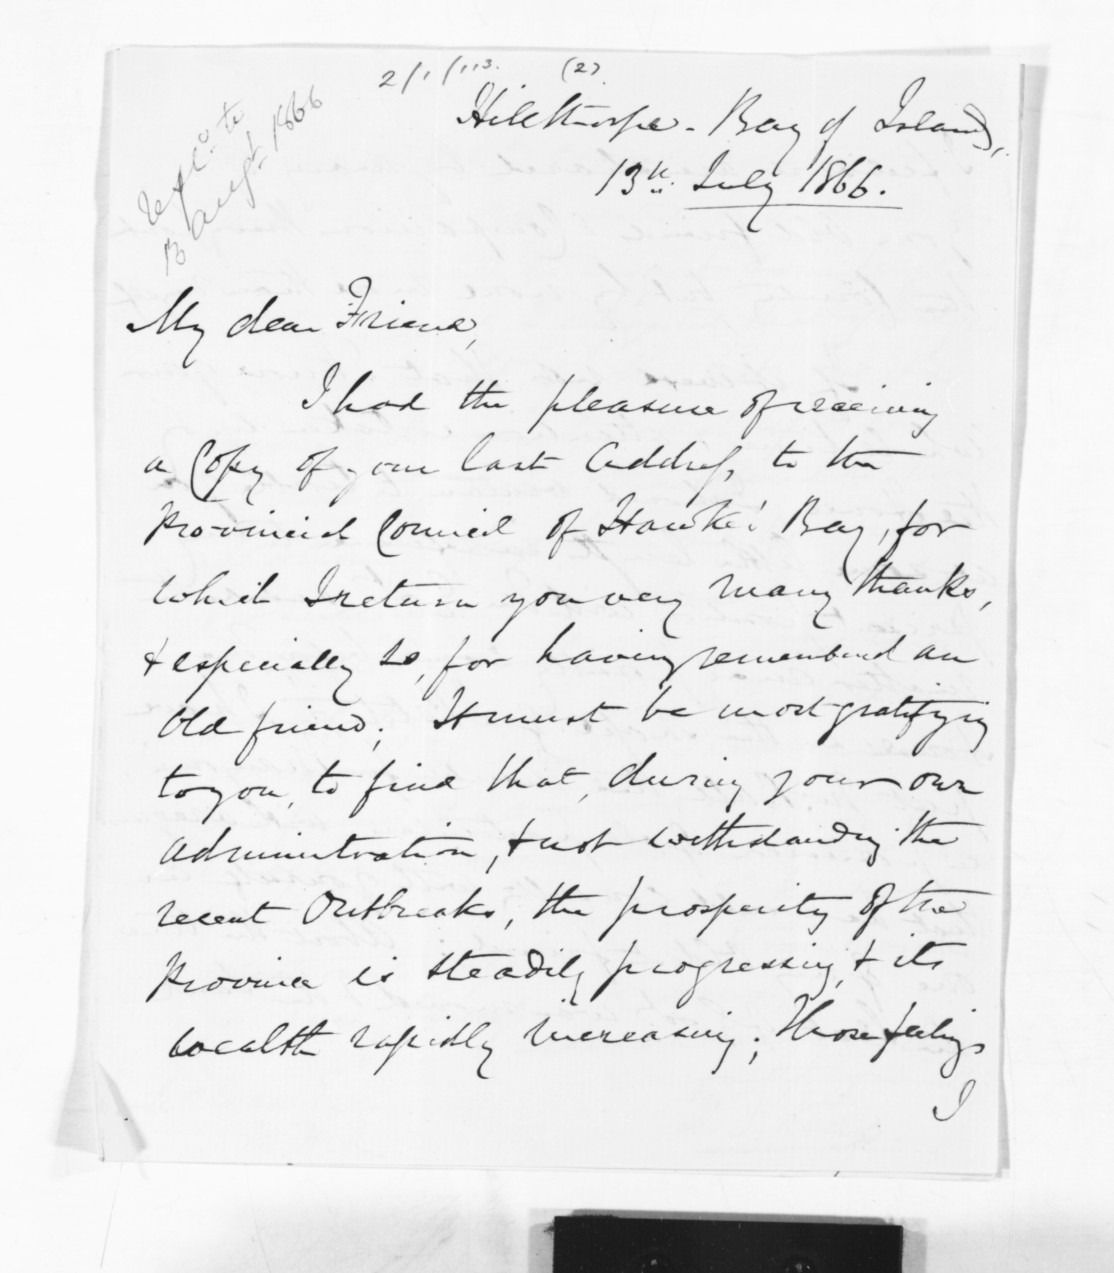 2/1/113. (2)
Hillthorpe - Bay of Islands,
13th. July 1866.
Repd. to
13 Augt. 1866
My dear Friend,
I had the pleasure of receiving
a Copy of your last Address, to the
Provincial Council of Hawke's Bay, for
which I return you very many thanks,
& especially so, for having remembered an
Old friend; It must be most gratifying
to you, to find that, during your own
administration, & notwithstanding the
recent Outbreaks, the prosperity of the
Province is steadily progressing, & its
wealth rapidly increasing; Those feelings
I